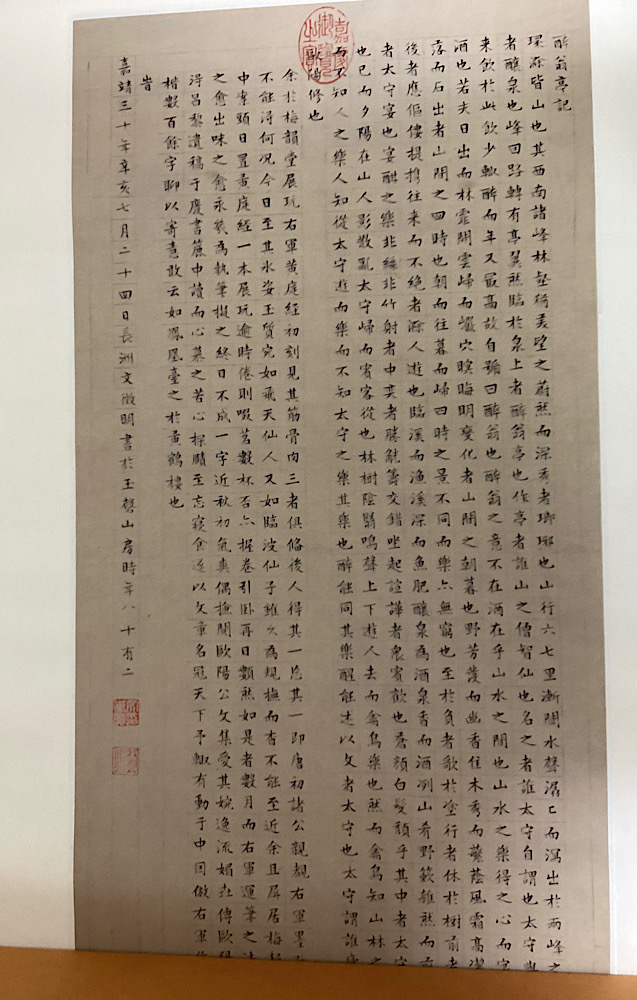 醉翁亭記
環滁皆山也其西南諸峰林壑猗美望之蔚然而深秀者瑯琊也山行六七里漸聞水聲潺〻而瀉出於兩峰之
者釀泉也峰回路轉有亭翼然臨於泉上者醉翁亭也作亭者誰山之僧智仙也名之者誰太守自謂也太守與
來飲於此飲少輒醉而年又最高故自號曰醉翁也醉翁之意不在酒在乎山水之間也山水之樂得之心而寓
酒也若夫日出而林霏開雲歸而巖穴暝晦明變化者山間之朝暮也野芳發而幽香佳木秀而蘩蔭風霜高潔
落而石出者山間之四時也朝而往暮而歸四時之景不同而樂亦無窮也至於負者歌於塗行者休於樹前者
後者應傴僂提攜往來而不絕者滁人遊也臨溪而漁溪深而魚肥釀泉為酒泉香而酒冽山肴野蔌雜然而前
者太守宴也宴酣之樂非絲非竹射者中奕者勝觥籌交錯坐起諠譁者眾賓歡也蒼顏白髮頹乎其中者太守
也已而夕陽在山人影散亂太守歸而賓客從也林樹陰翳鳴聲上下遊人去而禽鳥樂也然而禽鳥知山林之
而不知人之樂人知從太守遊而樂而不知太守之樂其樂也醉能同其樂醒能述以文者太守也太守謂誰廬
歐陽修也
余於梅韻堂展玩右軍黃庭經初刻見其筋骨肉三者俱備後人得其一忘其一即唐初諸公親覩右軍墨
不能得何況今日至其冰姿玉質宛如飛天仙人又如臨波仙子雖久為規撫而杳不能至近余且屏居梅
中案頭日置黃庭經一本展玩逾時倦則啜茗數杯否亦握卷引臥再日額然如是者數月而右軍運筆之法
之愈出味之愈永幾為執筆擬之終日不成一字近秋初氣爽偶撿閱歐陽公文集愛其婉逸流媚世傳歐陽
得昌黎遺稿于廢書簏中讀而心慕之苦心探賾至忘寢食遂以文章名冠天下予輒有動于中因倣右軍作
楷數百餘字聊以寄意敢云如鳳凰臺之於黃鶴樓也
旹
嘉靖三十年辛亥七月二十四日長洲文徵明書於玉磬山房時年八十有二